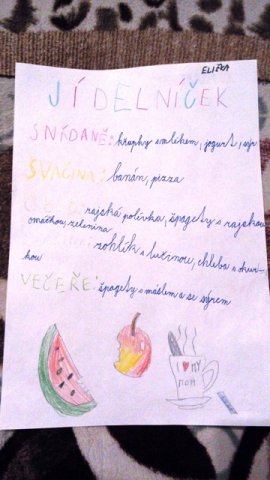 ELIŠKA
JÍDELNÍČEK
SNÍDANĚ: krupky s mlékem, jogurt, sýr
SVAČINA: banán, pizza
rajská polívka, špagety s rajskou
omáčkou, zelenina
rohlík s lučinou, chleba s okur-
kou
VEČEŘE: špagety s máslem a se sýrem
I MY
MOM